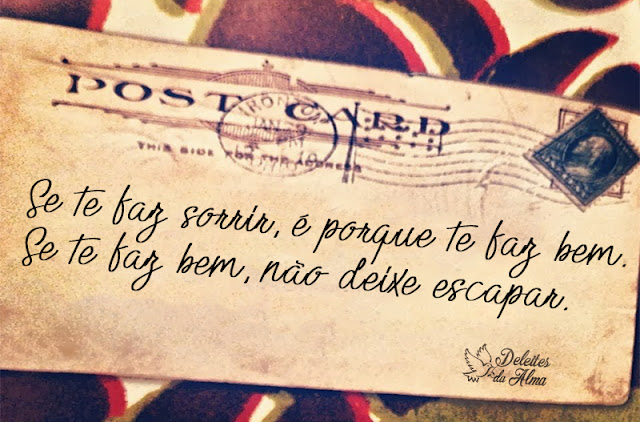 POST CARD
IRONTON
JAN
THIS SIDE FOR THE ADDRESS
Se te faz sorrir, é porque te faz bem.
Se te faz bem, não deixe escapar.
Deleites
da Alma